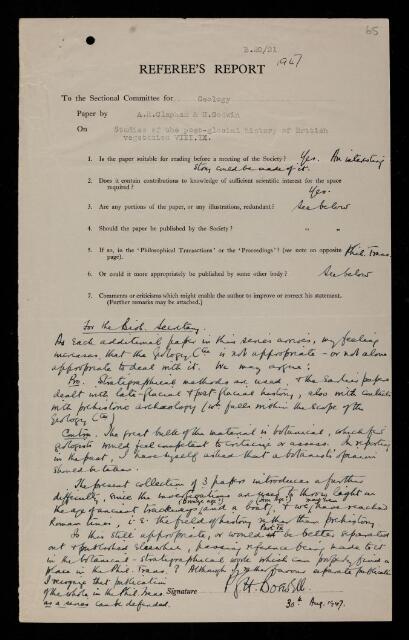 65
B.20/21
1947
REFEREE'S REPORT
To the Sectional Committee for Geology
Paper by A.R.Clapham & H.Godwin
On Studies of the post-glacial history of British
vegetation VIII.IX.
1. Is the paper suitable for reading before a meeting of the Society? Yes. An interesting
story could be made of it.
2. Does it contain contributions to knowledge of sufficient scientific interest for the space
required? Yes.
3. Are any portions of the paper, or any illustrations, redundant? See below
4. Should the paper be published by the Society? " "
5. If so, in the 'Philosophical Transactions' or the 'Proceedings'? (see note on opposite
page). Phil. Trans.
6. Or could it more appropriately be published by some other body? See below
7. Comments or criticisms which might enable the author to improve or correct his statement.
(Further remarks may be attached.)
For the Biol. Secretary.
As each additional paper in this series arrives, my feeling
increases that the Geology Ctee is not appropriate - or not alone
appropriate to deal with it. We may argue:
Pro. Stratigraphical methods are used, & the earlier papers
dealt with late-glacial & post glacial history, also with contacts
with prehistoric archaeology (wh. falls within the scope of the
Geology Ctee)
Contra. The great bulk of the material is botanical, which few
geologists would feel competent to criticize or assess. In reporting
in the past, I have myself asked that a botanist's opinion
should be taken.
The present collection of 3 papers introduces a further
difficulty, since the investigations are used to throw light on
(Bronze age!) (Iron age!)
the age of ancient trackways and a boat, & we have reached
Roman times, i.e. the field of history rather than prehistory.
Part IX
Is this still appropriate, or would it be better separated
out & published elsewhere, passing reference being made to it
in the botanical-stratigraphical work which can properly find a
place in the Phil. Trans.? Although I rather favour separate publication
I recognise that publication
of the whole in the Phil. Trans.
as a series can be defended.
Signature P.G.H. Boswell.
30th Aug. 1947.